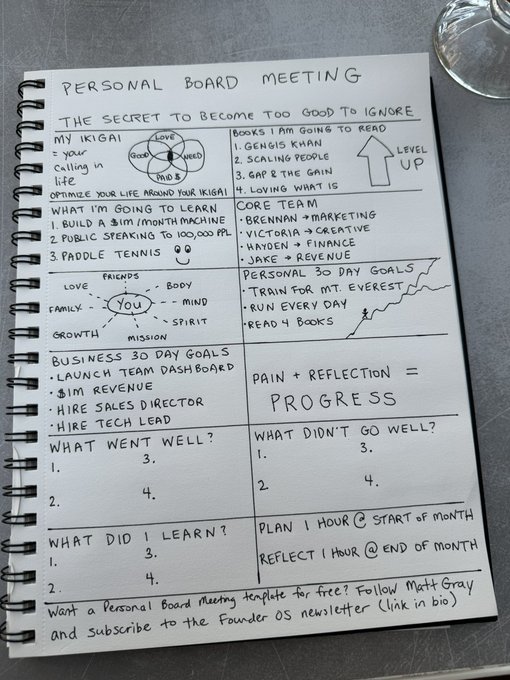 PERSONAL BOARD MEETING
THE SECRET TO BECOME TOO GOOD TO IGNORE
MY IKIGAI
= your
Calling in
life
LOVE
GOOD
NEED
PAID $
OPTIMIZE YOUR LIFE AROUND YOUR IKIGAI
BOOKS I AM GOING TO READ
1. GENGIS KHAN
2. SCALING PEOPLE
3. GAP & THE GAIN
4. LOVING WHAT IS
LEVEL
UP
WHAT I'M GOING TO LEARN
1. BUILD A $1M/MONTH MACHINE
2 PUBLIC SPEAKING TO 100,000 PPL
3. PADDLE TENNIS
CORE TEAM
• BRENNAN → MARKETING
• VICTORIA → CREATIVE
• HAYDEN → FINANCE
• JAKE → REVENUE
FRIENDS
LOVE
BODY
FAMILY
You
MIND
SPIRIT
GROWTH
MISSION
PERSONAL 30 DAY GOALS
• TRAIN FOR MT. EVEREST
• RUN EVERY DAY
• READ 4 BOOKS
BUSINESS 30 DAY GOALS
• LAUNCH TEAM DASHBOARD
• $1M REVENUE
• HIRE SALES DIRECTOR
• HIRE TECH LEAD
PAIN + REFLECTION =
PROGRESS
WHAT WENT WELL?
1. 3.
2. 4.
WHAT DIDN'T GO WELL?
1. 3.
2 4.
WHAT DID I LEARN?
1. 3.
2. 4.
PLAN 1 HOUR @ START OF MONTH
REFLECT 1 HOUR @ END OF MONTH
Want a Personal Board Meeting template for free? Follow Matt Gray
and subscribe to the Founder OS newsletter (link in bio)